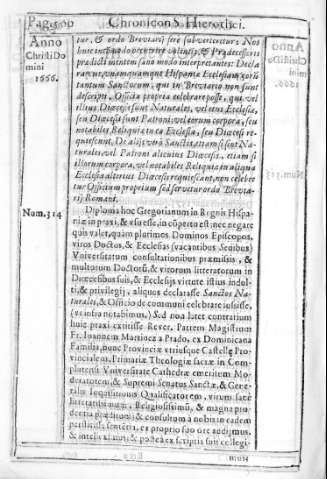 Pag. 500 Chronicon S. Hierothei.
Anno
Christi Do
mini
1666.
tur, & ordo Breviarij fere subverteretur: Nos
huic incommodo
prædicti mentem sano modo interpretantes: Decla
ramus, unamquamque Hispaniæ Ecclesiam eorũ
tantum Sanctorum, qui in Breviario non sunt
descripti, Officia propria celebrare posse, qui vel
illius Diœcesis sunt Naturales, vel eius Ecclesiæ,
seu Diœcesis sunt Patroni, vel eorum corpora, seu
notabiles Reliquiæ in ea Ecclesia, seu Diœcesi re
quiescunt. De alijs verò Sanctis, etiam si sunt Na
turales, vel Patroni alicuius Diœcesis, etiam si
illorum corpora, vel notabiles Reliquiæ in aliqua
Ecclesia alterius Diœcesis requiescant, non celebre
tur Officium proprium, sed servetur ordo Brevia
rij Romani.
Num. 314
Diploma hoc Gregorianum in Regnis Hispa-
niæ in praxi, & usu esse, in cõperto est; nec negare
quis valet, quàm plurimos Dominos Episcopos,
viros Doctos, & Ecclesias (vacantibus Sedibus)
Universitatum consultationibus præmissis, &
multorum Doctorũ, & virorum litteratorum in
Diœcesibus suis, & Ecclesijs virtute istius indul-
ti, & privilegij, aliquos declarasse Sanctos Na-
turales, & Officio de communi celebrare iussisse,
(ut infra notabimus.) Sed non latet contrarium
huic praxi extitisse Rever. Patrem Magistrum
Fr. Ioannem Martinez a Prado, ex Dominicana
Familia, nunc Provinciæ utriusque Castellæ Pro
vincialem, Primariæ Theologiæ sacræ in Com
plutensi Universitate Cathedræ emeritum Mo
deratorem, & Supremi Senatus Sanctæ, & Gene
ralis Inquisitionis Qualificatorem, virum sanè
litteratissimum, Religiosissimũ, & magna pru
dentia præditum; & consultum à nobis in eadem
persistisse sententia, ex proprio suo ore audivimus,
& intelleximus; & postea ex scriptis suis collegi-